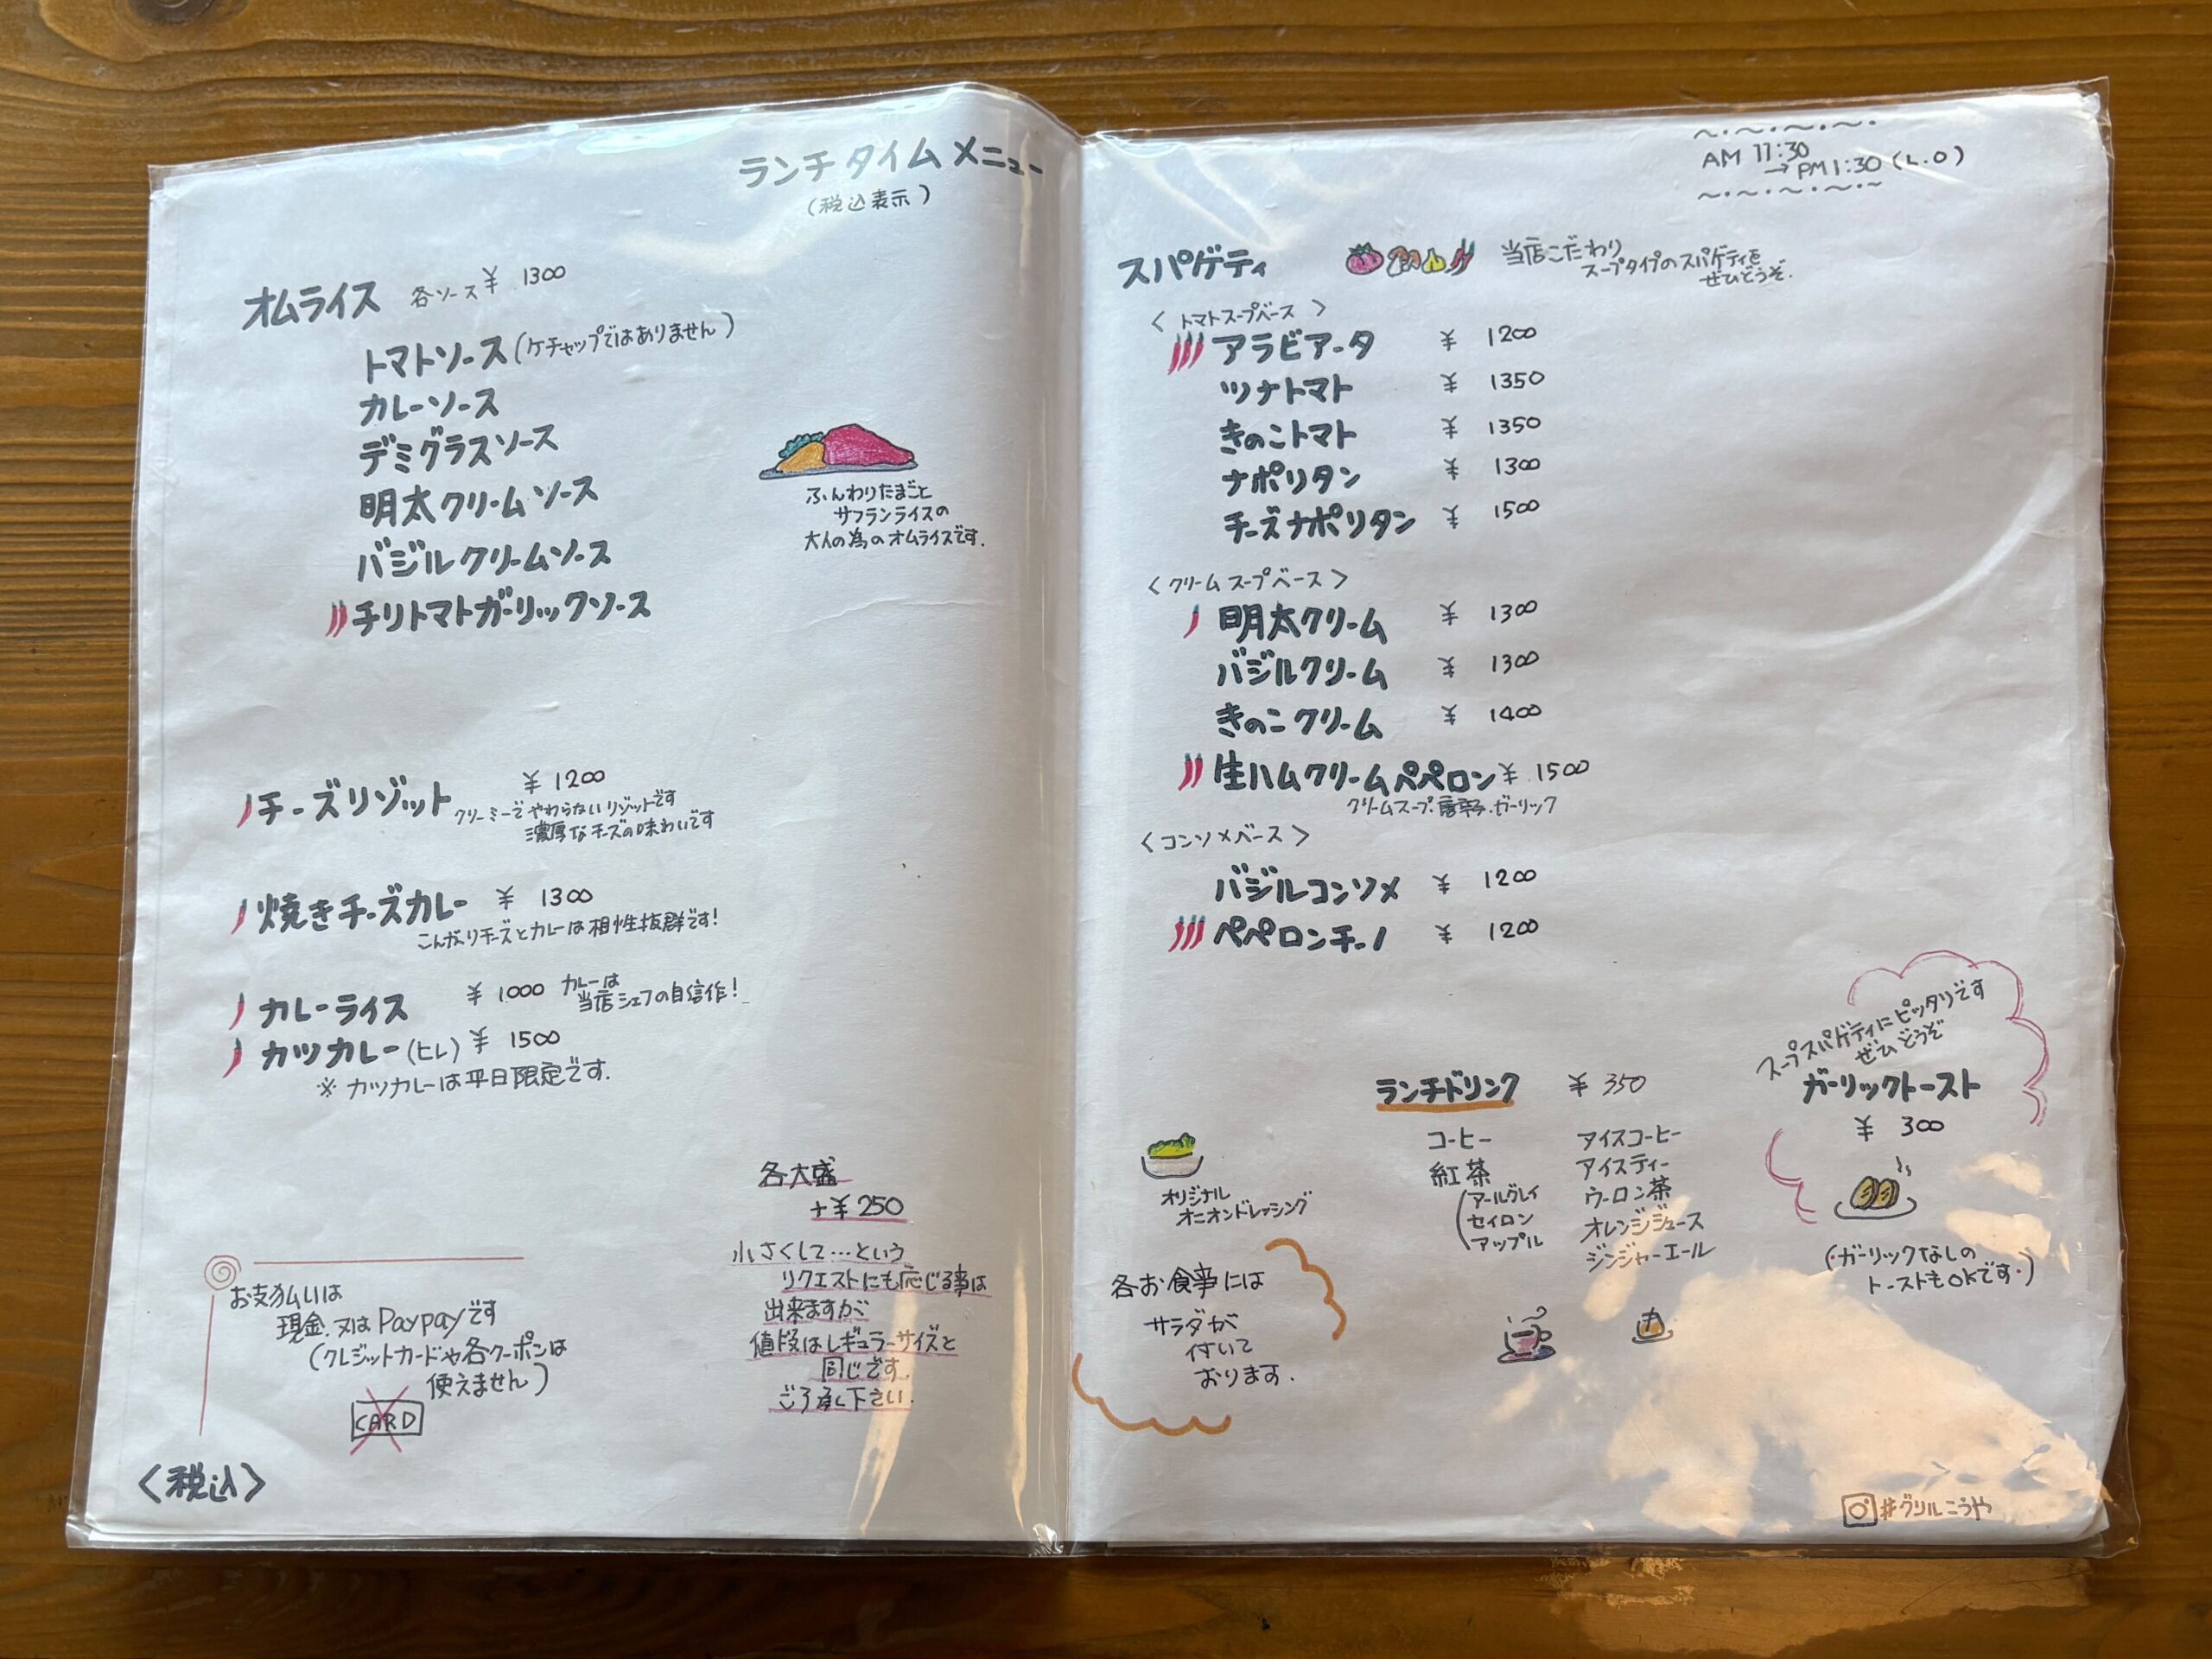 ランチタイムメニュー
(税込表示)
オムライス 各ソース ¥ 1300
トマトソース(ケチャップではありません)
カレーソース
デミグラスソース
明太クリームソース
バジルクリームソース
チリトマトガーリックソース
ふんわりたまごと
サフランライスの
大人の為のオムライスです.
チーズリゾット ¥ 1200
クリーミーでやわらないリゾットです
濃厚なチーズの味わいです
焼きチーズカレー ¥ 1300
こんがりチーズとカレーは相性抜群です!
カレーライス ¥ 1000 カレーは
当店シェフの自信作!
カツカレー(ヒレ) ¥ 1500
※ カツカレーは平日限定です.
各大盛
+¥250
小さくして…という
リクエストにも応じる事は
出来ますが
値段はレギュラーサイズと
同じです.
ご了承下さい.
お支払いは
現金.又はPaypayです
(クレジットカードや各クーポンは
使えません)
CARD
<税込>
AM 11:30
→PM1:30(L.O)
スパゲティ 当店こだわり
スープタイプのスパゲティを
ぜひどうぞ.
<トマトスープベース>
アラビアータ ¥ 1200
ツナトマト ¥ 1350
きのこトマト ¥ 1350
ナポリタン ¥ 1300
チーズナポリタン ¥ 1500
<クリームスープベース>
明太クリーム ¥ 1300
バジルクリーム ¥ 1300
きのこクリーム ¥ 1400
生ハムクリームペペロン ¥ 1500
クリームスープ.唐辛子.ガーリック
<コンソメベース>
バジルコンソメ ¥ 1200
ペペロンチーノ ¥ 1200
オリジナル
オニオンドレッシング
各お食事には
サラダが
付いて
おります.
ランチドリンク ¥ 350
コーヒー
紅茶
(アールグレイ
セイロン
アップル
アイスコーヒー
アイスティー
ウーロン茶
オレンジジュース
ジンジャーエール
スープスパゲティにピッタリです
ぜひどうぞ
ガーリックトースト
¥ 300
(・ガーリックなしの
トーストもOKです・)
#グリルこうや